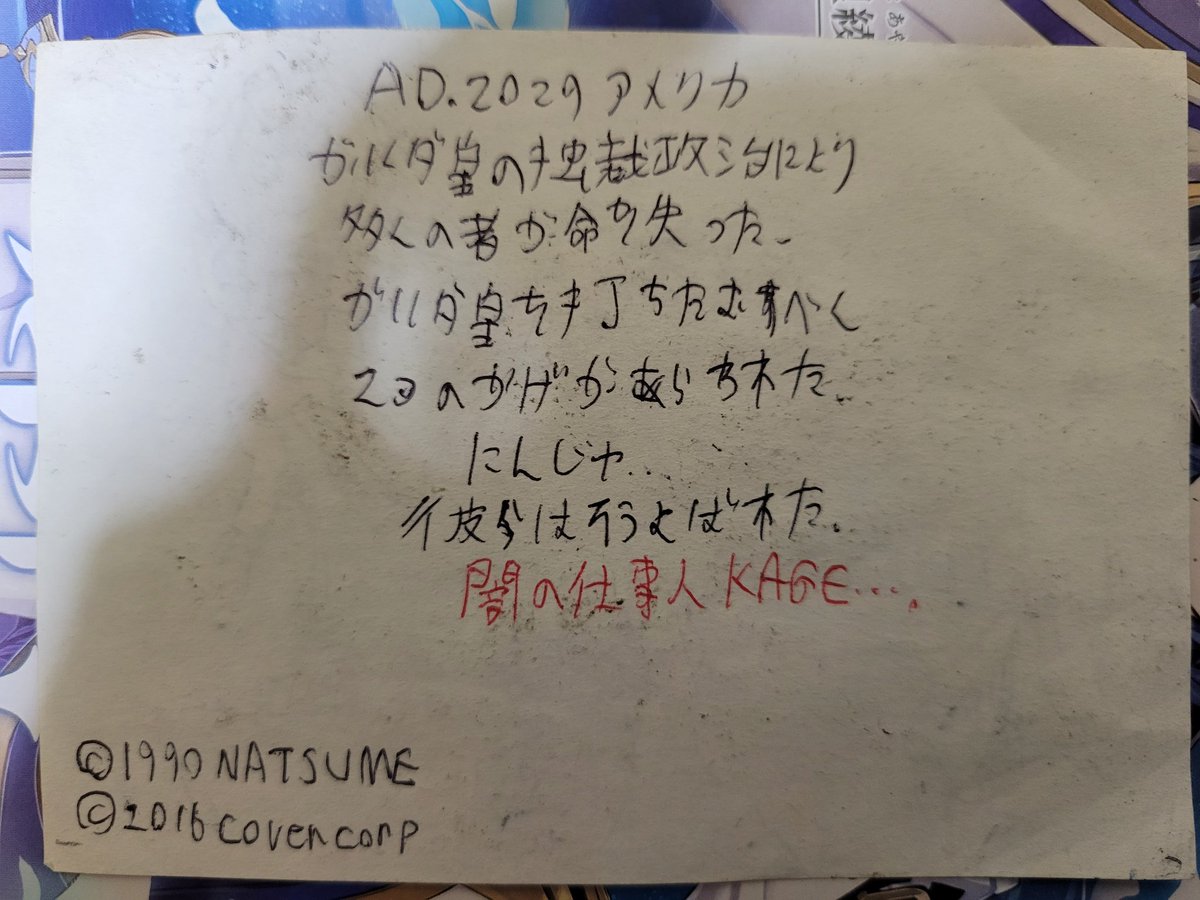 あや
綾
AD.2029 アメリカ
ガルダ皇の独裁政治により
多くの者が命を失った。
ガルダ皇を打ちたおすべく
2つのかげがあらわれた。
にんじゃ...
彼らはそうよばれた。
闇の仕事人 KAGE....
©1990 NATSUME
©2016 covercorp